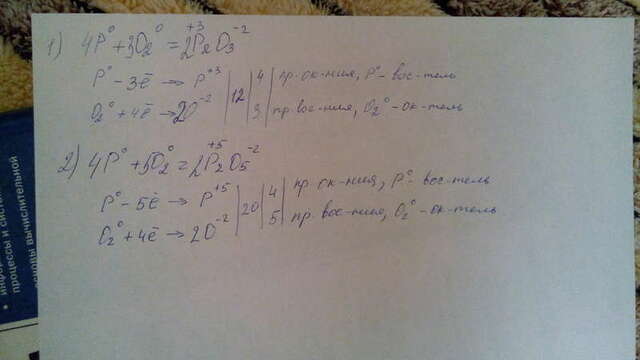 1) 4P⁰ + 3O₂⁰ = 2P₂⁺³O₃⁻²
P⁰ - 3ē → P⁺³ | 12 | 4 | пр. ок-ния, P⁰ - вос-тель
O₂⁰ + 4ē → 2O⁻² | 3 | пр. вос-ния, O₂⁰ - ок-тель
2) 4P⁰ + 5O₂⁰ = 2P₂⁺⁵O₅⁻²
P⁰ - 5ē → P⁺⁵ | 20 | 4 | пр ок-ния, P⁰ - вос-тель
O₂⁰ + 4ē → 2O⁻² | 5 | пр. вос-ния, O₂⁰ - ок-тель
процессы и систем
основы вычислительной